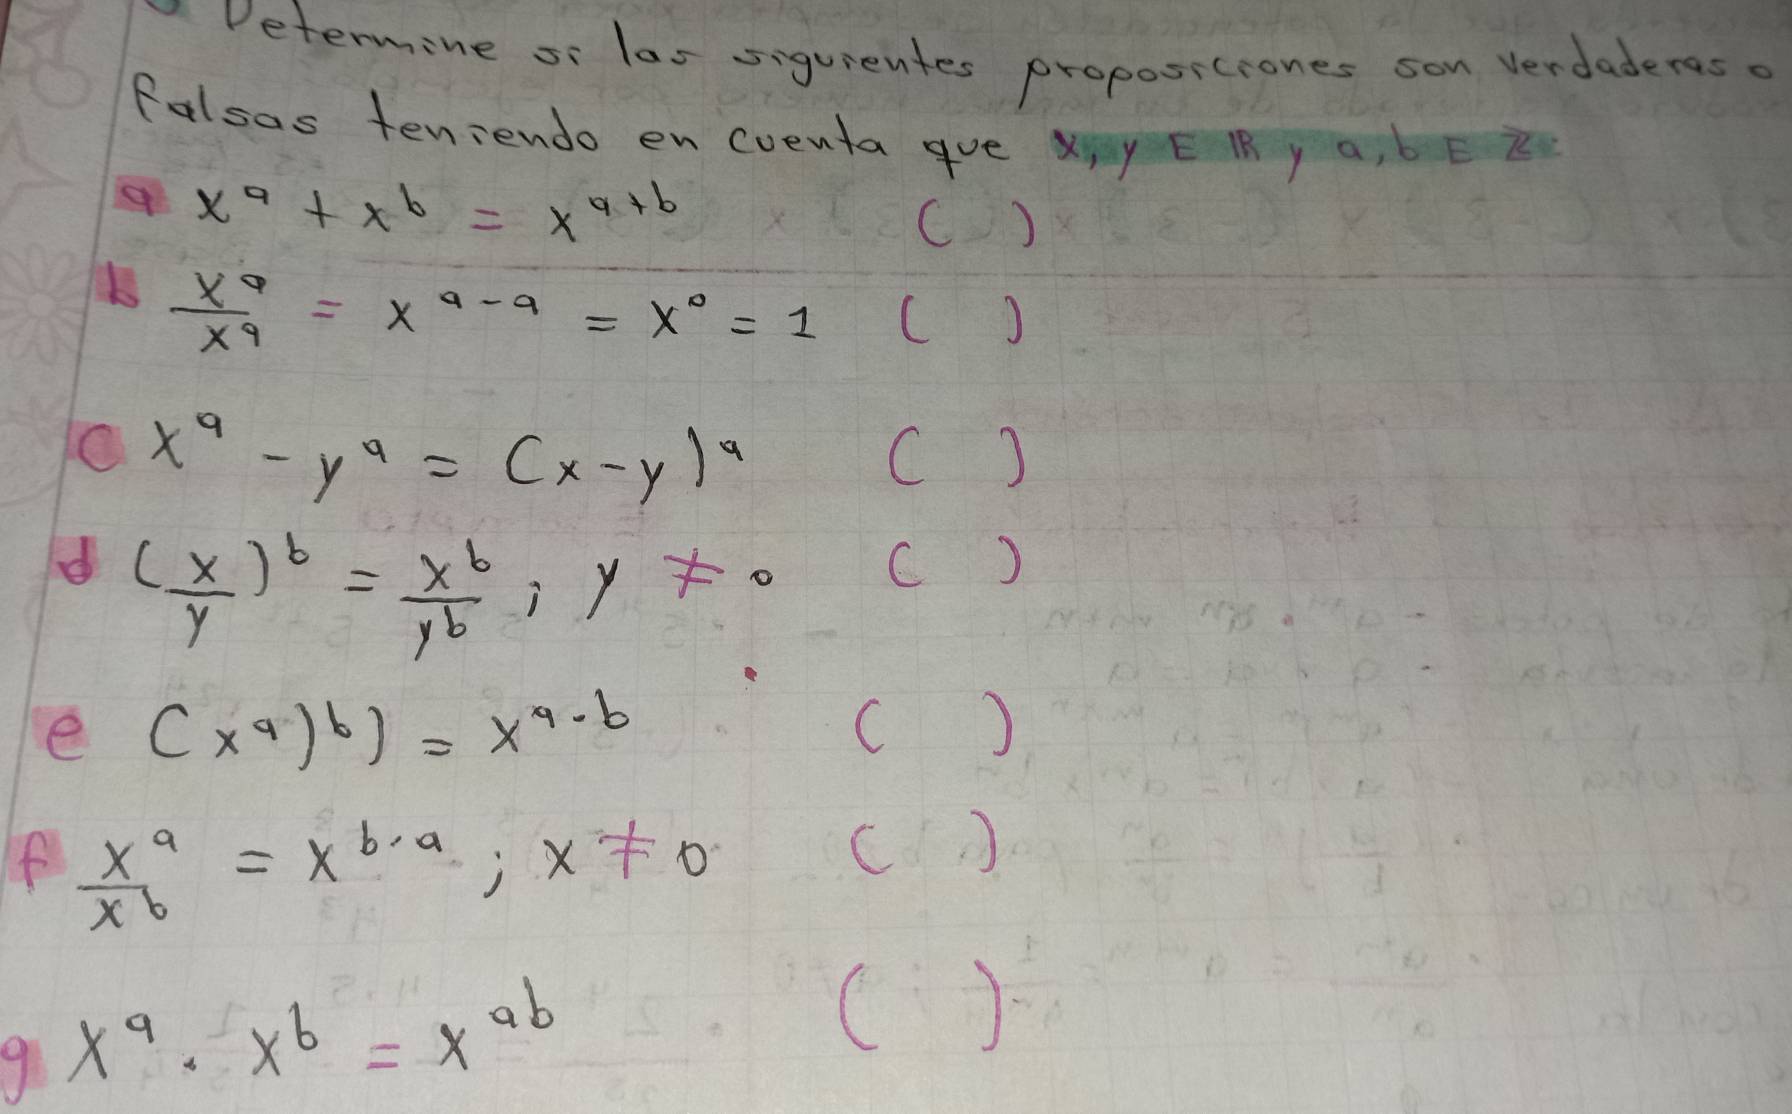 Determine si las siguientes proposiciones son verdaderas o
falsas teniendo en cuenta que x, y E ℝ y a, b E ℤ:
a x^a + x^b = x^(a+b) ( )
b x^a/x^a = x^(a-a) = x^0 = 1 ( )
c x^a - y^a = (x-y)^a ( )
d (x/y)^b = x^b/y^b ; y ≠ 0 ( )
e (x^a)^b) = x^(a·b) ( )
f x^a/x^b = x^(b-a) ; x ≠ 0 ( )
g x^a . x^b = x^(ab) ( )